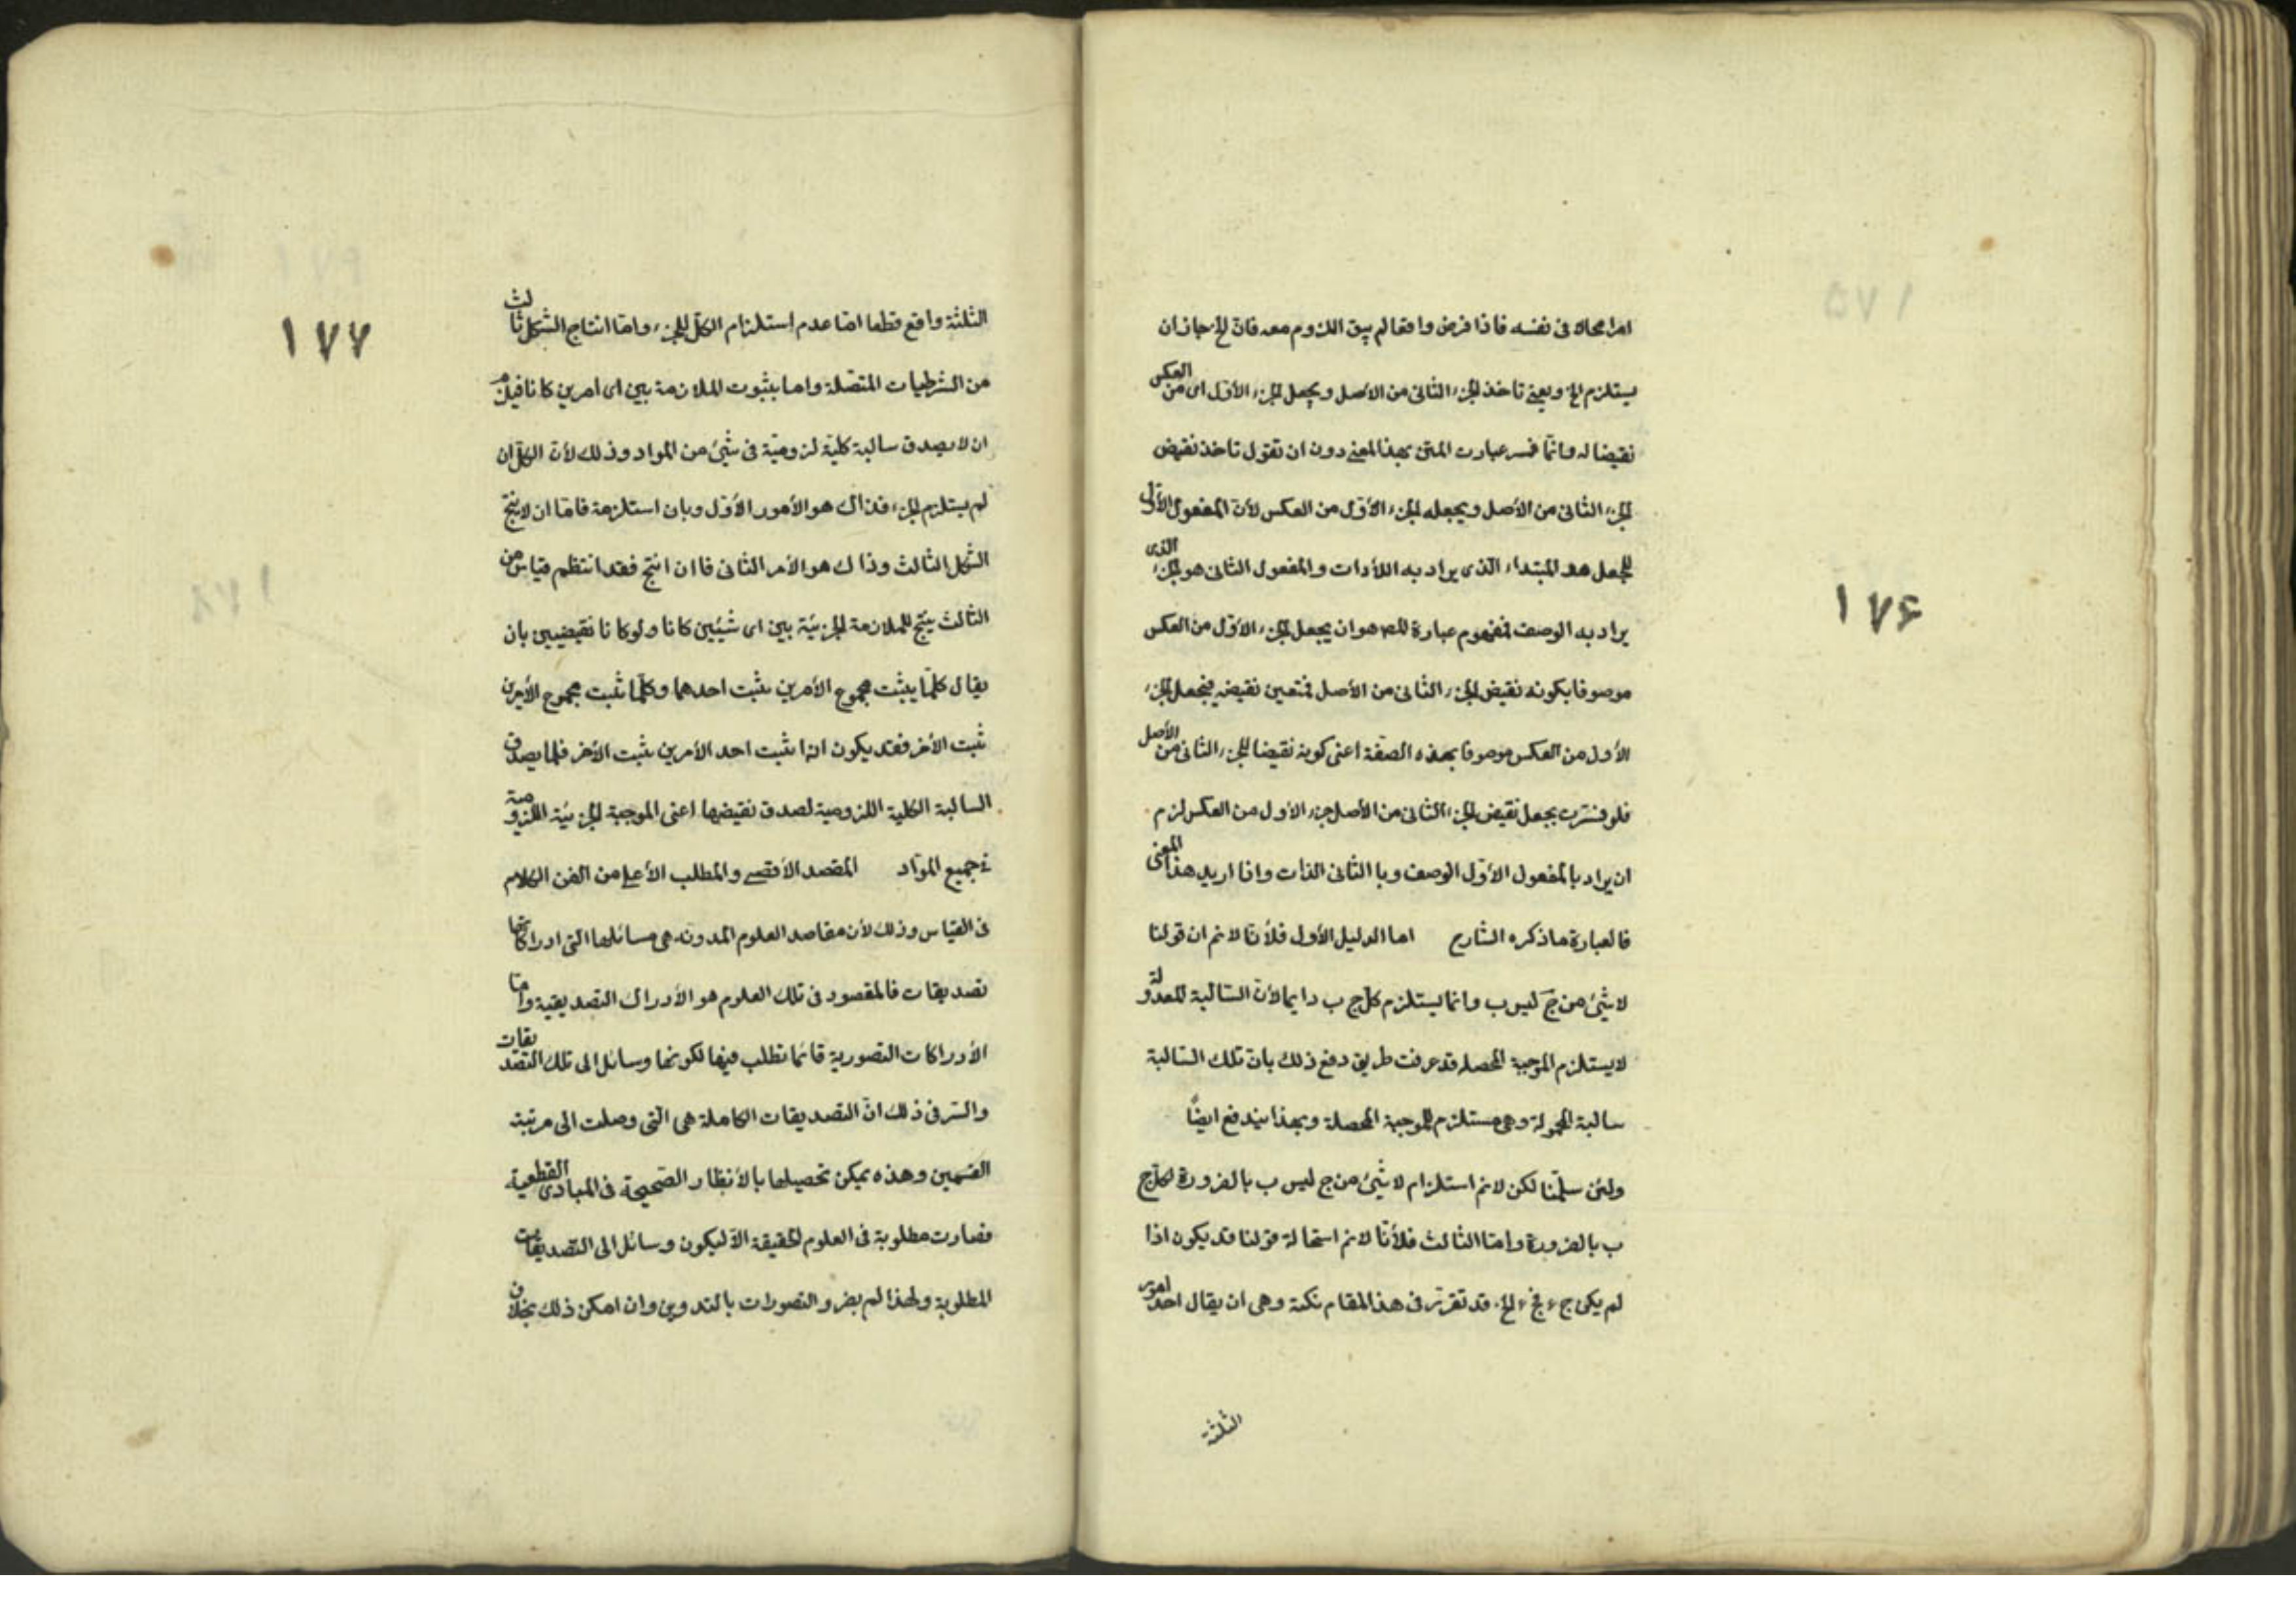 امرا محالا فى نفسه فاذا فرض واقعا لم يبق اللزوم معه فان لخ جاز ان
يستلزم لخ ويعنى تاخذ لجزء الثانى من الأصل ويجعل لجزء الأول اى من العكس
نقيضا له وانما فسر عبارت المتن بهذا المعنى دون ان تقول تاخذ نقيض
لجزء الثانى من الأصل ويجعله لجزء الأول من العكس لأن المفعول الأول
لجعل هو المبتداء الذى يراد به اللأدات والمفعول الثانى هو لجزء الذى
يراد به الوصف فمفهوم عبارة للص هو ان يجعل لجزء الأول من العكس
موصوفا بكونه نقيض لجزء الثانى من الأصل فتعين نقيضه فيجعل لجزء
الأول من العكس موصوفا بهذه الصفة اعنى كونه نقيضا للجزء الثانى من الأصل
فلو فسرت بجعل نقيض لجزء الثانى من الأصل جزء الأول من العكس لزم
ان يراد بالمفعول الأول الوصف وبا الثانى الذات واذا اريد هذا المعنى
فالعبارة ماذكره الشارح اما الدليل الأول فلأنا لا نم ان قولنا
لا شئ من ج ليس ب وانما يستلزم كل ج ب دايما لأن السالبة المعدولة
لا يستلزم الموجبة المحصله قد عرفت طريق دفع ذلك بان تلك السالبة
سالبة المحمولة وهى مستلزم للموجبة المحصلة وبهذا يندفع ايضًا
ولئن سلمنا لكن لا نم استلزام لا شئ من ج ليس ب بالضرورة لكل ج
ب بالضرورة واما الثالث فلأنا لا نم استحالة قولنا قد يكون اذا
لم يكن ج ء فج ء لخ قد تقرر فى هذا المقام نكتة وهى ان يقال احد امور
الثلثة
١٧۶
الثلثة واقع قطعا اما عدم استلزام الكل للجزء واما انتاج الشكل ثالث
من الشرطيات المتصلة واما بثبوت الملازمة بين اى امرين كانا فيلزم
ان لا يصدق سالبة كلية لزومية فى شئ من المواد وذلك لأن الكل ان
لم يستلزم لجزء فذاك هو الأمور الأول وبان استلزمة فاما ان لا ينتج
الشكل الثالث وذاك هو الأمر الثانى فاان انتج فقد انتظم قياس من
الثالث ينتج للملازمة لجزئية بين اى شيئين كانا ولو كانا نقيضيين بان
يقال كلما يثبت مجموع الأمرين يثبت احدهما وكلما ثبت مجموع الأمرين
ثبت الأخر فقد يكون اذا ثبت احد الأمرين يثبت الأخر فلما يصدق
السالبة الكلية اللزومية لصدق نقيضها اعنى الموجبة لجزئية اللزومية
فى جميع المواد المقصد الأقصى والمطلب الأعلى من الفن الكلام
فى القياس وذلك لأن مقاصد العلوم المدونه هى مسائلها التى ادراكاتها
تصديقات فالمقصود فى تلك العلوم هو الأدراك التصديقية واما
الأدراكات التصورية قانما تطلب فيها لكونها وسائل الى تلك التصديقات
والسر فى ذلك ان التصديقات الكاملة هى التى وصلت الى مرتبة
القسمين وهذه يمكن تحصيلها بالأنظار الصحيحة فى المبادى القطعية
فصارت مطلوبة فى العلوم لحقيقة الا ليكون وسائل الى التصديقات
المطلوبة ولهذا لم يفرو التصورات بالتدوين وان امكن ذلك بخلاف
١٧٧